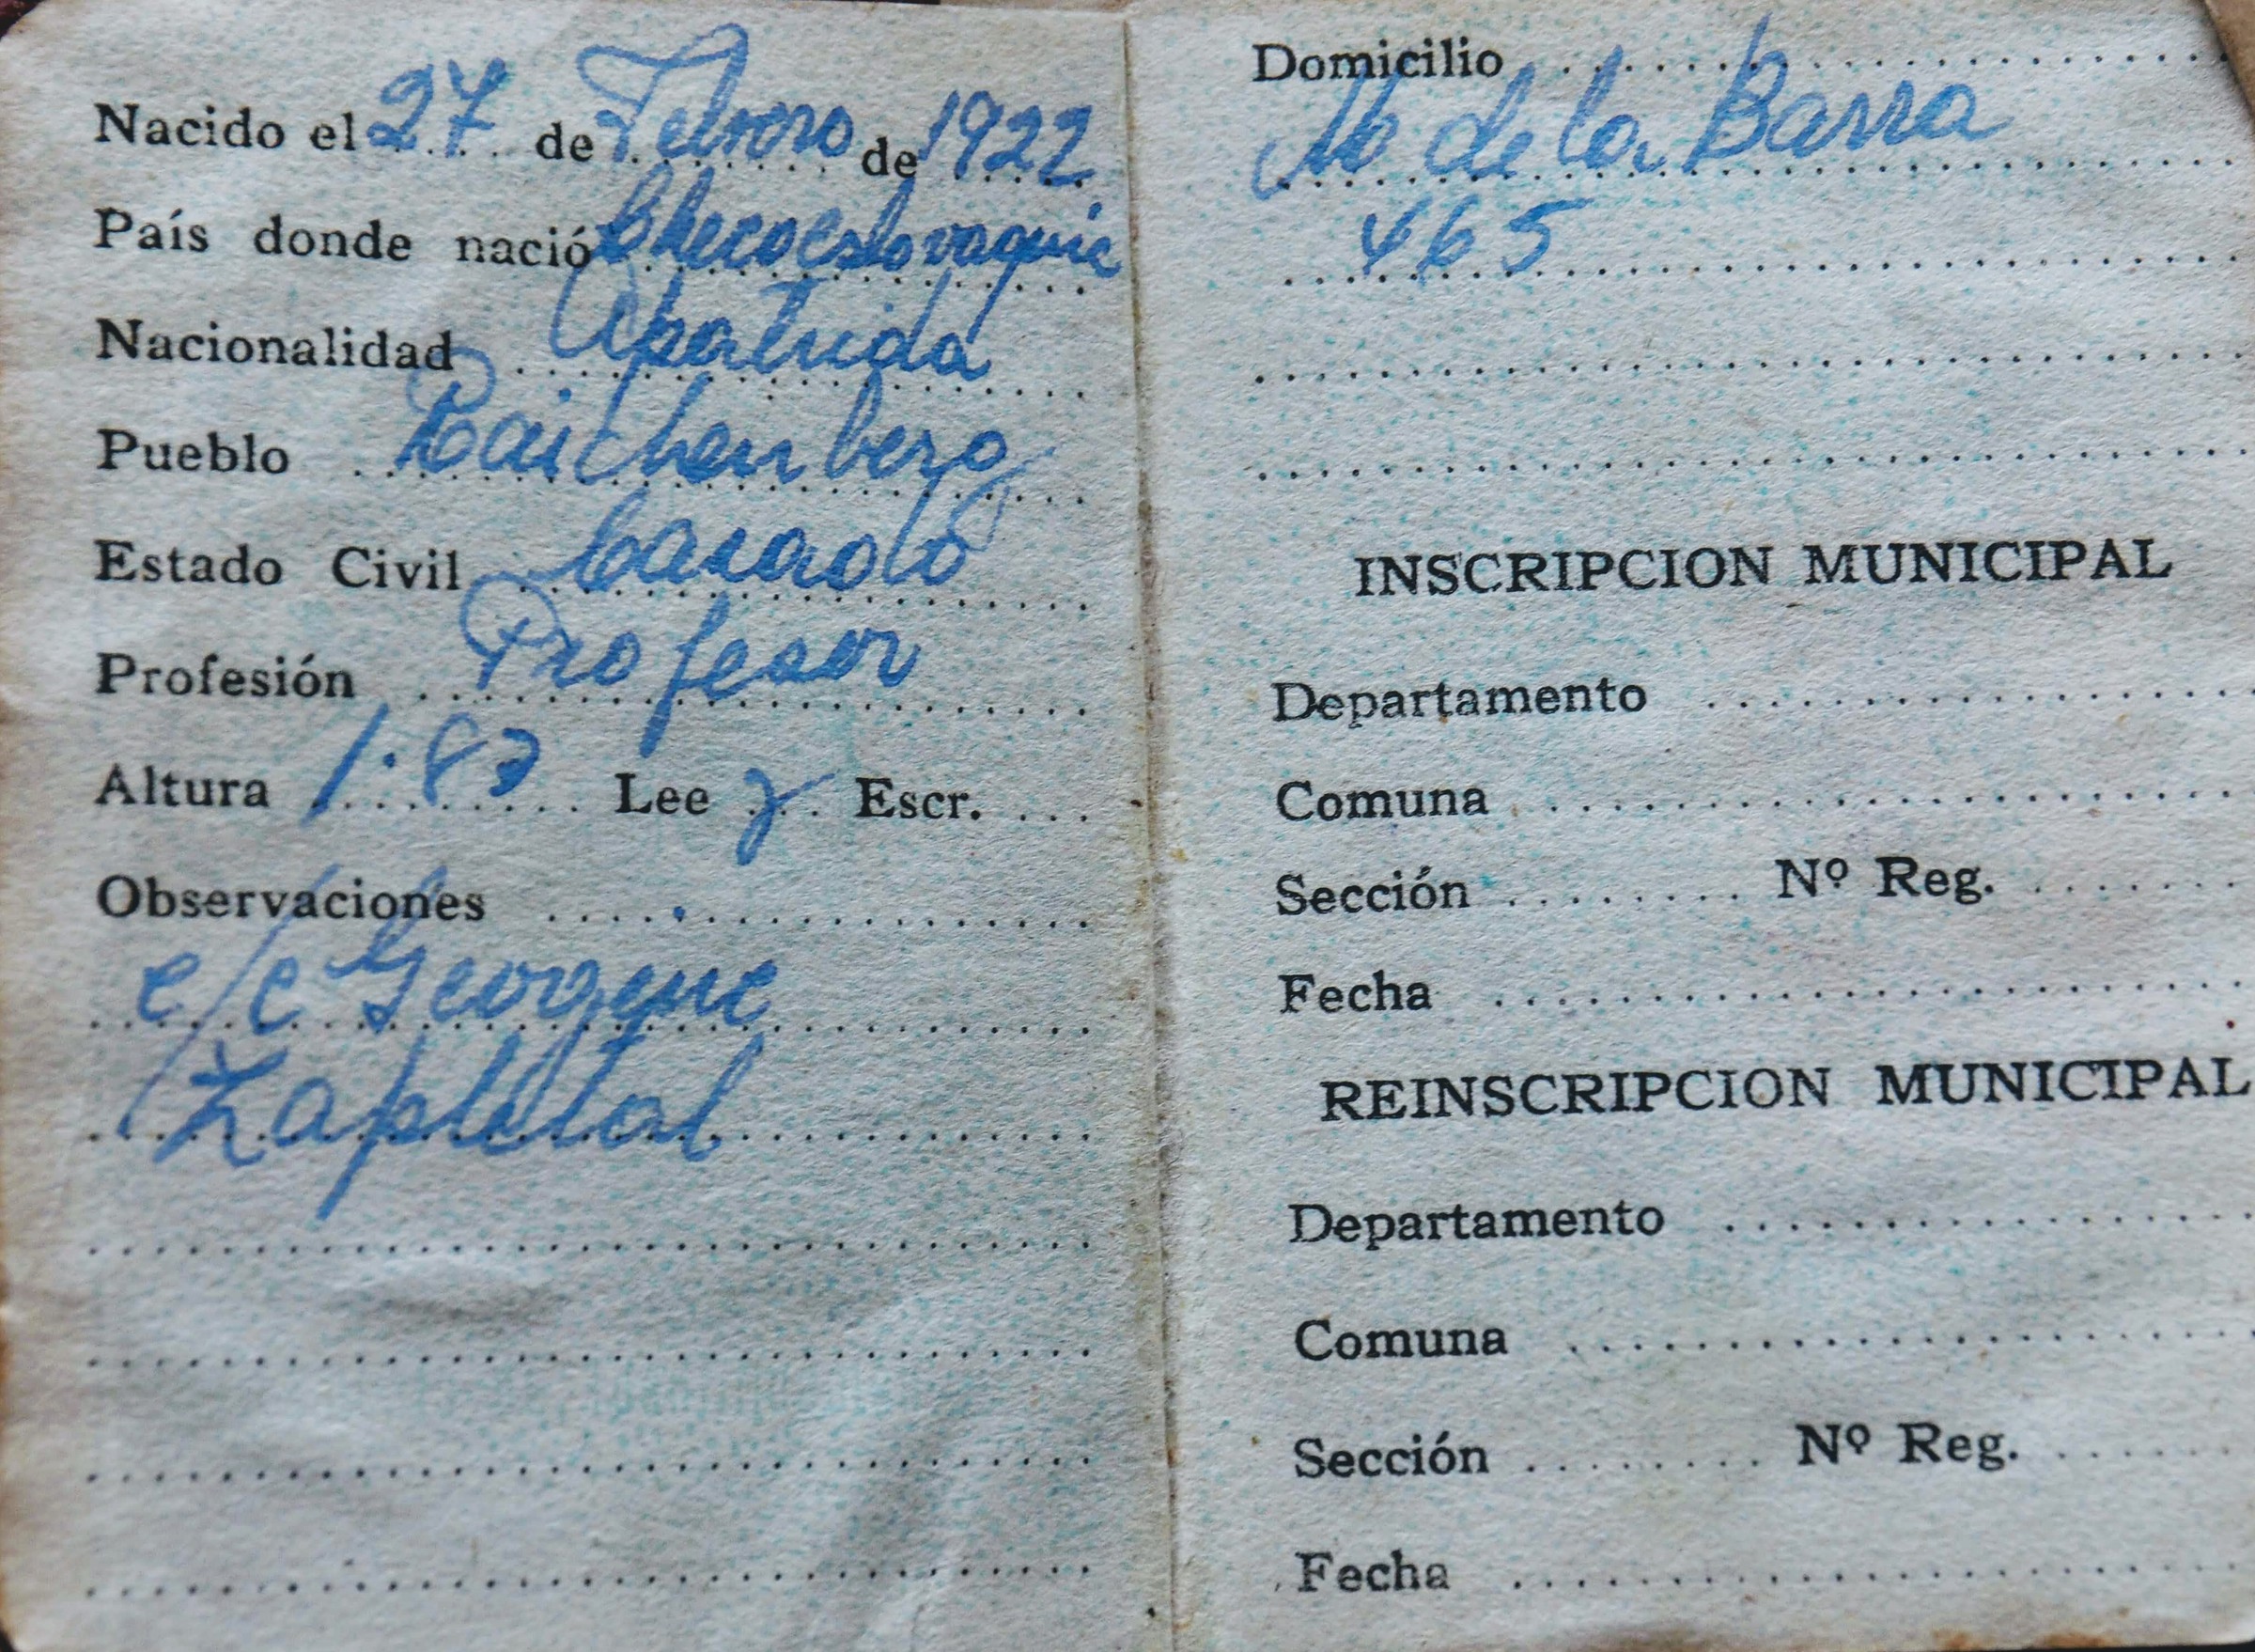 Nacido el 27 de Febrero de 1922
País donde nació Checoeslovaquia
Nacionalidad Apatrida
Pueblo Raichenberg
Estado Civil Casado
Profesión Profesor
Altura 1.87 Lee y Escr.
Observaciones
c/c Georgine
Zapletal
Domicilio
de la Barra
465
INSCRIPCION MUNICIPAL
Departamento
Comuna
Sección Nº Reg.
Fecha
REINSCRIPCION MUNICIPAL
Departamento
Comuna
Sección Nº Reg.
Fecha